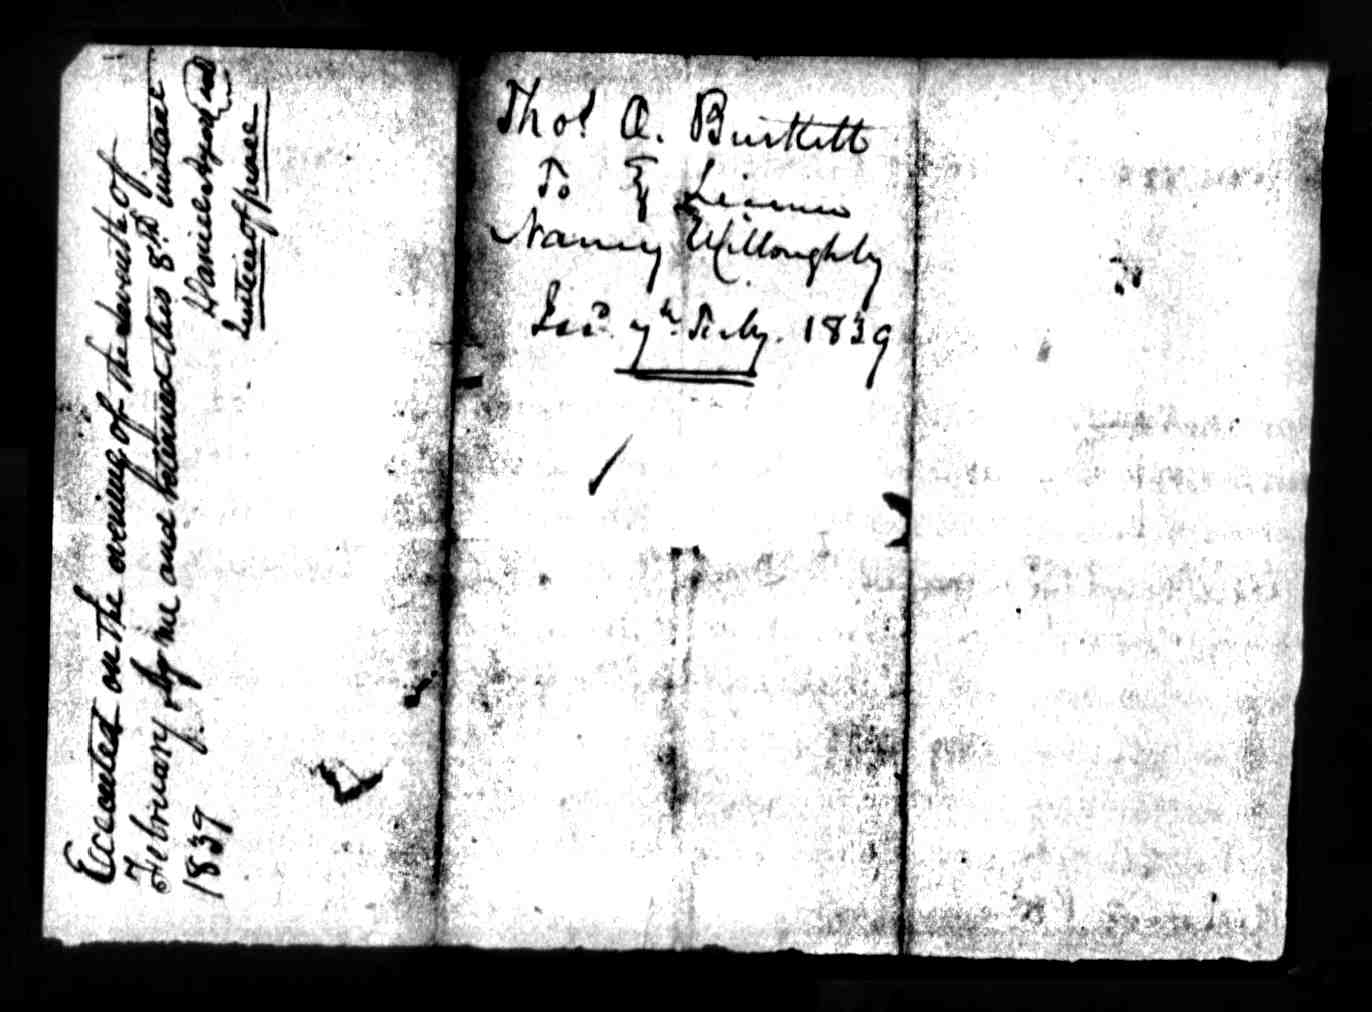 Executed on the evening of the seventh of
February by me and returned this 8th instant
1839
Justice of peace
Thos. A. Burkett
To License
Nancy Willoughby
Issd. 7th Feby. 1839